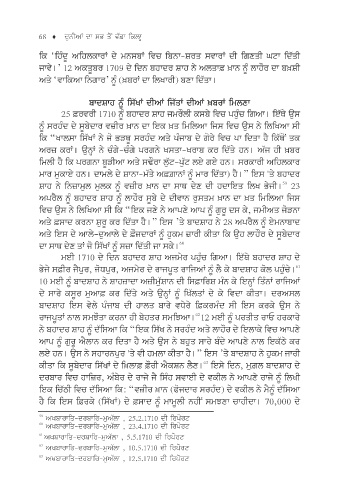 68 ♦ ਦੁਨੀਆਂ ਦਾ ਸਭ ਤੋਂ ਵੱਡਾ ਕਿਲ੍ਹਾ
ਕਿ 'ਹਿੰਦੂ ਅਹਿਲਕਾਰਾਂ ਦੇ ਮਨਸਬਾਂ ਵਿਚ ਬਿਨਾ-ਸ਼ਰਤ ਸਵਾਰਾਂ ਦੀ ਗਿਣਤੀ ਘਟਾ ਦਿੱਤੀ
ਜਾਵੇ।' 12 ਅਕਤੂਬਰ 1709 ਦੇ ਦਿਨ ਬਹਾਦਰ ਸ਼ਾਹ ਨੇ ਅਲਤਾਫ਼ ਖ਼ਾਨ ਨੂੰ ਲਾਹੌਰ ਦਾ ਬਖ਼ਸ਼ੀ
ਅਤੇ 'ਵਾਕਿਆ ਨਿਗਾਰ' ਨੂੰ (ਖ਼ਬਰਾਂ ਦਾ ਲਿਖਾਰੀ) ਬਣਾ ਦਿੱਤਾ।
ਬਾਦਸ਼ਾਹ ਨੂੰ ਸਿੱਖਾਂ ਦੀਆਂ ਜਿੱਤਾਂ ਦੀਆਂ ਖ਼ਬਰਾਂ ਮਿਲਣਾ
25 ਫ਼ਰਵਰੀ 1710 ਨੂੰ ਬਹਾਦਰ ਸ਼ਾਹ ਜਮਰੌਲੀ ਕਸਬੇ ਵਿਚ ਪਹੁੰਚ ਗਿਆ। ਇੱਥੇ ਉਸ
ਨੂੰ ਸਰਹੰਦ ਦੇ ਸੂਬੇਦਾਰ ਵਜ਼ੀਰ ਖ਼ਾਨ ਦਾ ਇਕ ਖ਼ਤ ਮਿਲਿਆ ਜਿਸ ਵਿਚ ਉਸ ਨੇ ਲਿਖਿਆ ਸੀ
ਕਿ "ਖਾਲਸਾ ਸਿੱਖਾਂ ਨੇ ਜੋ ਭੜਥੂ ਸਰਹੰਦ ਅਤੇ ਪੰਜਾਬ ਦੇ ਗੇਰੇ ਵਿਚ ਪਾ ਦਿਤਾ ਹੈ ਕਿੱਥੋਂ ਤਕ
ਅਰਜ਼ ਕਰਾਂ। ਉਨ੍ਹਾਂ ਨੇ ਚੰਗੇ-ਚੰਗੇ ਪਰਗਨੇ ਖ਼ਸਤਾ-ਖ਼ਰਾਬ ਕਰ ਦਿੱਤੇ ਹਨ। ਅੱਜ ਹੀ ਖ਼ਬਰ
ਮਿਲੀ ਹੈ ਕਿ ਪਰਗਨਾ ਬੂੜੀਆ ਅਤੇ ਸਢੌਰਾ ਲੁੱਟ-ਪੁੱਟ ਲਏ ਗਏ ਹਨ। ਸਰਕਾਰੀ ਅਹਿਲਕਾਰ
ਮਾਰ ਮੁਕਾਏ ਹਨ। ਦਾਮਲੇ ਦੇ ਸ਼ਾਨਾਂ-ਮੱਤੇ ਅਫ਼ਗ਼ਾਨਾਂ ਨੂੰ ਮਾਰ ਦਿੱਤਾ ਹੈ।" ਇਸ 'ਤੇ ਬਹਾਦਰ
ਸ਼ਾਹ ਨੇ ਨਿਜ਼ਾਮੁਲ ਮੁਲਕ ਨੂੰ ਵਜ਼ੀਰ ਖ਼ਾਨ ਦਾ ਸਾਥ ਦੇਣ ਦੀ ਹਦਾਇਤ ਲਿਖ ਭੇਜੀ। 23
ਅਪਰੈਲ ਨੂੰ ਬਹਾਦਰ ਸ਼ਾਹ ਨੂੰ ਲਾਹੌਰ ਸੂਬੇ ਦੇ ਦੀਵਾਨ ਰੁਸਤਮ ਖ਼ਾਨ ਦਾ ਖ਼ਤ ਮਿਲਿਆ ਜਿਸ
ਵਿਚ ਉਸ ਨੇ ਲਿਖਿਆ ਸੀ ਕਿ "ਇਕ ਜਣੇ ਨੇ ਆਪਣੇ ਆਪ ਨੂੰ ਗੁਰੂ ਦਸ ਕੇ, ਜਮੀਅਤ ਜੋੜਨਾ
ਅਤੇ ਫ਼ਸਾਦ ਕਰਨਾ ਸ਼ੁਰੂ ਕਰ ਦਿੱਤਾ ਹੈ।" ਇਸ 'ਤੇ ਬਾਦਸ਼ਾਹ ਨੇ 28 ਅਪਰੈਲ ਨੂੰ ਏਮਨਾਬਾਦ
ਅਤੇ ਇਸ ਦੇ ਆਲੇ-ਦੁਆਲੇ ਦੇ ਫ਼ੌਜਦਾਰਾਂ ਨੂੰ ਹੁਕਮ ਜ਼ਾਰੀ ਕੀਤਾ ਕਿ ਉਹ ਲਾਹੌਰ ਦੇ ਸੂਬੇਦਾਰ
ਦਾ ਸਾਥ ਦੇਣ ਤਾਂ ਜੋ ਸਿੱਖਾਂ ਨੂੰ ਸਜ਼ਾ ਦਿੱਤੀ ਜਾ ਸਕੇ।
ਮਈ 1710 ਦੇ ਦਿਨ ਬਹਾਦਰ ਸ਼ਾਹ ਅਜਮੇਰ ਪਹੁੰਚ ਗਿਆ। ਇੱਥੇ ਬਹਾਦਰ ਸ਼ਾਹ ਦੇ
ਭੇਜੇ ਸਫ਼ੀਰ ਜੈਪੁਰ, ਜੋਧਪੁਰ, ਅਜਮੇਰ ਦੇ ਰਾਜਪੂਤ ਰਾਜਿਆਂ ਨੂੰ ਲੈ ਕੇ ਬਾਦਸ਼ਾਹ ਕੋਲ ਪਹੁੰਚੇ।
10 ਮਈ ਨੂੰ ਬਾਦਸ਼ਾਹ ਨੇ ਸ਼ਾਹਜ਼ਾਦਾ ਅਜ਼ੀਮੁੱਸ਼ਾਨ ਦੀ ਸਿਫ਼ਾਰਿਸ਼ ਮੰਨ ਕੇ ਇਨ੍ਹਾਂ ਤਿੰਨਾਂ ਰਾਜਿਆਂ
ਦੇ ਸਾਰੇ ਕਸੂਰ ਮੁਆਫ਼ ਕਰ ਦਿੱਤੇ ਅਤੇ ਉਨ੍ਹਾਂ ਨੂੰ ਖਿੱਲਤਾਂ ਦੇ ਕੇ ਵਿਦਾ ਕੀਤਾ। ਦਰਅਸਲ
ਬਾਦਸ਼ਾਹ ਇਸ ਵੇਲੇ ਪੰਜਾਬ ਦੀ ਹਾਲਤ ਬਾਰੇ ਵਧੇਰੇ ਫ਼ਿਕਰਮੰਦ ਸੀ ਇਸ ਕਰਕੇ ਉਸ ਨੇ
ਰਾਜਪੂਤਾਂ ਨਾਲ ਸਮਝੌਤਾ ਕਰਨਾ ਹੀ ਬੇਹਤਰ ਸਮਝਿਆ। 12 ਮਈ ਨੂੰ ਪਰਤੀਤ ਰਾਓ ਹਰਕਾਰੇ
ਨੇ ਬਹਾਦਰ ਸ਼ਾਹ ਨੂੰ ਦੱਸਿਆ ਕਿ "ਇਕ ਸਿੱਖ ਨੇ ਸਰਹੰਦ ਅਤੇ ਲਾਹੌਰ ਦੇ ਇਲਾਕੇ ਵਿਚ ਆਪਣੇ
ਆਪ ਨੂੰ ਗੁਰੂ ਐਲਾਨ ਕਰ ਦਿਤਾ ਹੈ ਅਤੇ ਉਸ ਨੇ ਬਹੁਤ ਸਾਰੇ ਬੰਦੇ ਆਪਣੇ ਨਾਲ ਇਕੱਠੇ ਕਰ
ਲਏ ਹਨ। ਉਸ ਨੇ ਸਹਾਰਨਪੁਰ 'ਤੇ ਵੀ ਹਮਲਾ ਕੀਤਾ ਹੈ।" ਇਸ 'ਤੇ ਬਾਦਸ਼ਾਹ ਨੇ ਹੁਕਮ ਜਾਰੀ
ਕੀਤਾ ਕਿ ਸੂਬੇਦਾਰ ਸਿੱਖਾਂ ਦੇ ਖ਼ਿਲਾਫ਼ ਫ਼ੌਰੀ ਐਕਸ਼ਨ ਲੈਣ। ਇਸੇ ਦਿਨ, ਮੁਗ਼ਲ ਬਾਦਸ਼ਾਹ ਦੇ
ਦਰਬਾਰ ਵਿਚ ਹਾਜ਼ਿਰ, ਅੰਬੇਰ ਦੇ ਰਾਜੇ ਜੈ ਸਿੰਹ ਸਵਾਈ ਦੇ ਵਕੀਲ ਨੇ ਆਪਣੇ ਰਾਜੇ ਨੂੰ ਲਿਖੀ
ਇਕ ਚਿੱਠੀ ਵਿਚ ਦੱਸਿਆ ਕਿ: "ਵਜ਼ੀਰ ਖ਼ਾਨ (ਫੌਜਦਾਰ ਸਰਹੰਦ) ਦੇ ਵਕੀਲ ਨੇ ਮੈਨੂੰ ਦੱਸਿਆ
ਹੈ ਕਿ ਇਸ ਫ਼ਿਰਕੇ (ਸਿੱਖਾਂ) ਦੇ ਫ਼ਸਾਦ ਨੂੰ ਮਾਮੂਲੀ ਨਹੀਂ ਸਮਝਣਾ ਚਾਹੀਦਾ। 70,000 ਦੇ
ਅਖ਼ਬਾਰਾਤਿ-ਦਰਬਾਰਿ-ਮੁਅੱਲਾ , 25.2.1710 ਦੀ ਰਿਪੋਰਟ
ਅਖ਼ਬਾਰਾਤਿ-ਦਰਬਾਰਿ-ਮੁਅੱਲਾ , 23.4.1710 ਦੀ ਰਿਪੋਰਟ
ਅਖ਼ਬਾਰਾਤਿ-ਦਰਬਾਰਿ-ਮੁਅੱਲਾ , 5.5.1710 ਦੀ ਰਿਪੋਰਟ
ਅਖ਼ਬਾਰਾਤਿ-ਦਰਬਾਰਿ-ਮੁਅੱਲਾ , 10.5.1710 ਦੀ ਰਿਪੋਰਟ
ਅਖ਼ਬਾਰਾਤਿ-ਦਰਬਾਰਿ-ਮੁਅੱਲਾ , 12.5.1710 ਦੀ ਰਿਪੋਰਟ